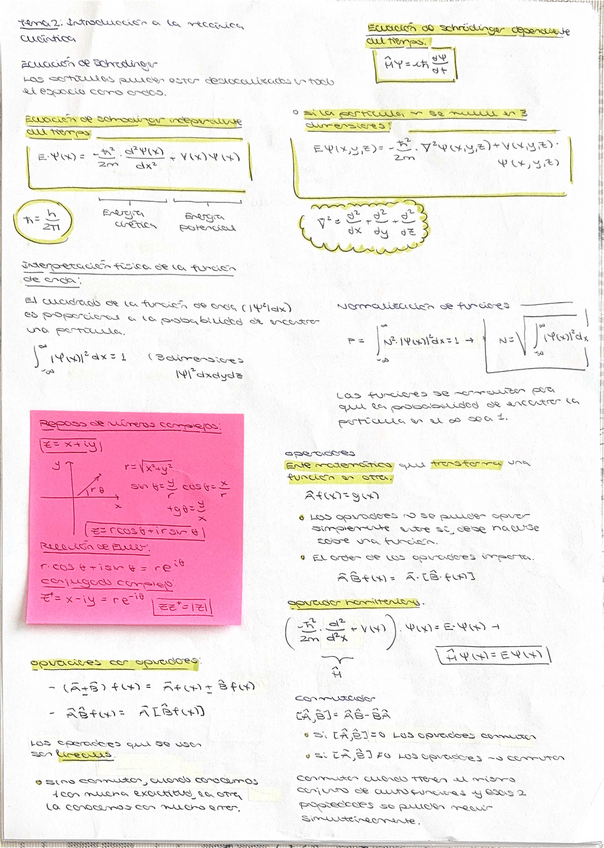 Tema 2. Introducción a la mecánica
cuántica
Ecuación de Schrödinger
Las partículas pueden estar deslocalizadas en todo
el espacio como ondas.
Ecuación de Schrödinger dependiente
del tiempo.
ĤΨ = iℏ dΨ/dt
Ecuación de Schrödinger independiente
del tiempo
E·Ψ(x) = -ℏ²/2m · d²Ψ(x)/dx² + V(x)Ψ(x)
ℏ = h/2π
Energía cinética
Energía potencial
Si la partícula se mueve en 3
dimensiones:
EΨ(x,y,z) = -ℏ²/2m · ∇²Ψ(x,y,z) + V(x,y,z)·
Ψ(x,y,z)
∇² = d²/dx + d²/dy + d²/dz
Interpretación física de la función
de onda:
El cuadrado de la función de onda (|Ψ²|dx)
es proporcional a la probabilidad de encontrar
una partícula.
∫ |Ψ(x)|² dx = 1 (3 dimensiones
|Ψ|² dxdydz
Normalización de funciones
P = ∫ N²·|Ψ(x)|² dx = 1 → N = √ ∫ |Ψ(x)|² dx
Las funciones se normalizan para
que la probabilidad de encontrar la
partícula en el ∞ sea 1.
Repaso de números complejos:
z = x + iy
y
r
θ
x
r = √x²+y²
sin θ = y/r cos θ = x/r
tg θ = y/x
z = r cos θ + i r sin θ
Relación de Euler:
r·cos θ + i sin θ = re^iθ
conjugado complejo
z* = x - iy = re^-iθ
zz* = |z|
operadores
Ente matemático que transforma una
función en otra.
Âf(x) = g(x)
Los operadores no se pueden operar
simplemente entre sí, debe hacerse
sobre una función.
El orden de los operadores importa.
ÂB̂f(x) = Â·[B̂f(x)]
operador hamiltoniano.
(-ℏ²/2m · d²/d²x + V(x)) · Ψ(x) = E·Ψ(x) →
Ĥ
ĤΨ(x) = EΨ(x)
operaciones con operadores:
- (Â±B̂) f(x) = Âf(x) ± B̂f(x)
- ÂB̂f(x) = Â[B̂f(x)]
Los operadores que se usan
son lineales
si no conmutan, cuando conocemos
1 con mucha exactitud, la otra
la conocemos con mucho error.
conmutador
[Â,B̂] = ÂB̂ - B̂Â
si [Â,B̂] = 0 los operadores conmutan
si [Â,B̂] ≠ 0 los operadores no conmutan
conmutan cuando tienen el mismo
conjunto de autofunciones y esas 2
propiedades se pueden medir
simultáneamente.